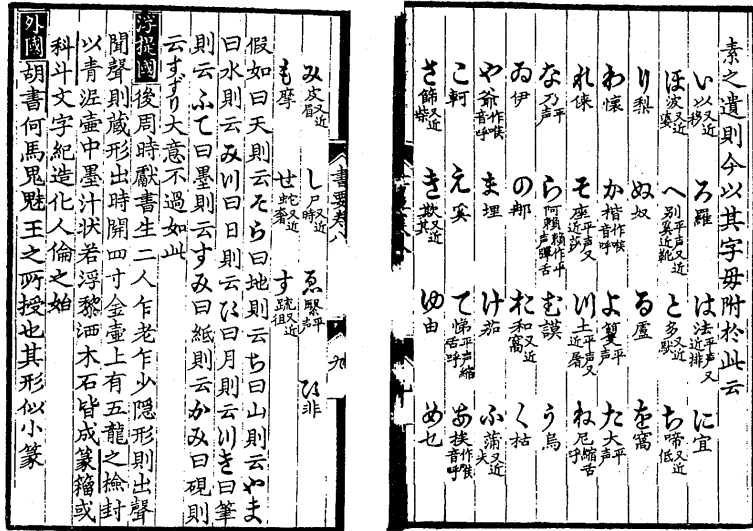 素之遺則今以其字毋附於此云
い 以又近移 ろ 羅 は 法平声又近排 に 宜
ほ 波又近婆 へ 別平声又近奚靴 と 多又近馱 ち 啼又近低
り 梨 ぬ 奴 る 盧 を 窩
わ 懷 か 楷作喉音呼 よ 夐平声 た 大平声
れ 倈 そ 座平声又近莎 川 土平声又近屠 ね 尼縮舌呼
な 乃平声 ら 阿賴賴作平声彈舌 む 謨 う 烏
ゐ 伊 の 那 お 和又近窩 く 枯
や 爺作喉音呼 ま 埋 け 茄 ふ 蒲又近夫
こ 軻 え 奚 て 悌平声縮舌呼 あ 挨作喉音呼
さ 篩又近柴 き 欺又近其 ゆ 由 め 乜
書要卷八 九
み 皮又近眉 し 尸又近時 ゑ 緊平声 ひ 非
も 摩 せ 蛇又近奢 す 疏又近徂
假如曰天則云そら曰地則云ち曰山則云やま
曰水則云み川曰日則云ひ曰月則云川き曰筆
則云ふて曰墨則云すみ曰紙則云かみ曰硯則
云すずり大意不過如此
浮提國 後周時獻書生二人乍老乍少隱形則出聲
聞聲則藏形出時開四寸金壺上有五龍之檢封
以青泥壺中墨汁状若浮黎洒木石皆成篆籀或
科斗文字紀造化人倫之始
外國 胡書何馬鬼魅王之所授也其形似小篆